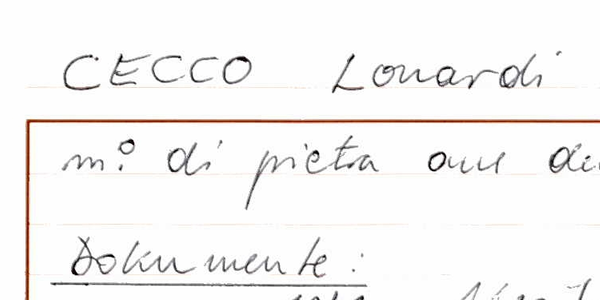 CECCO Lonardi
m.º di pietra aus
Dokumente: